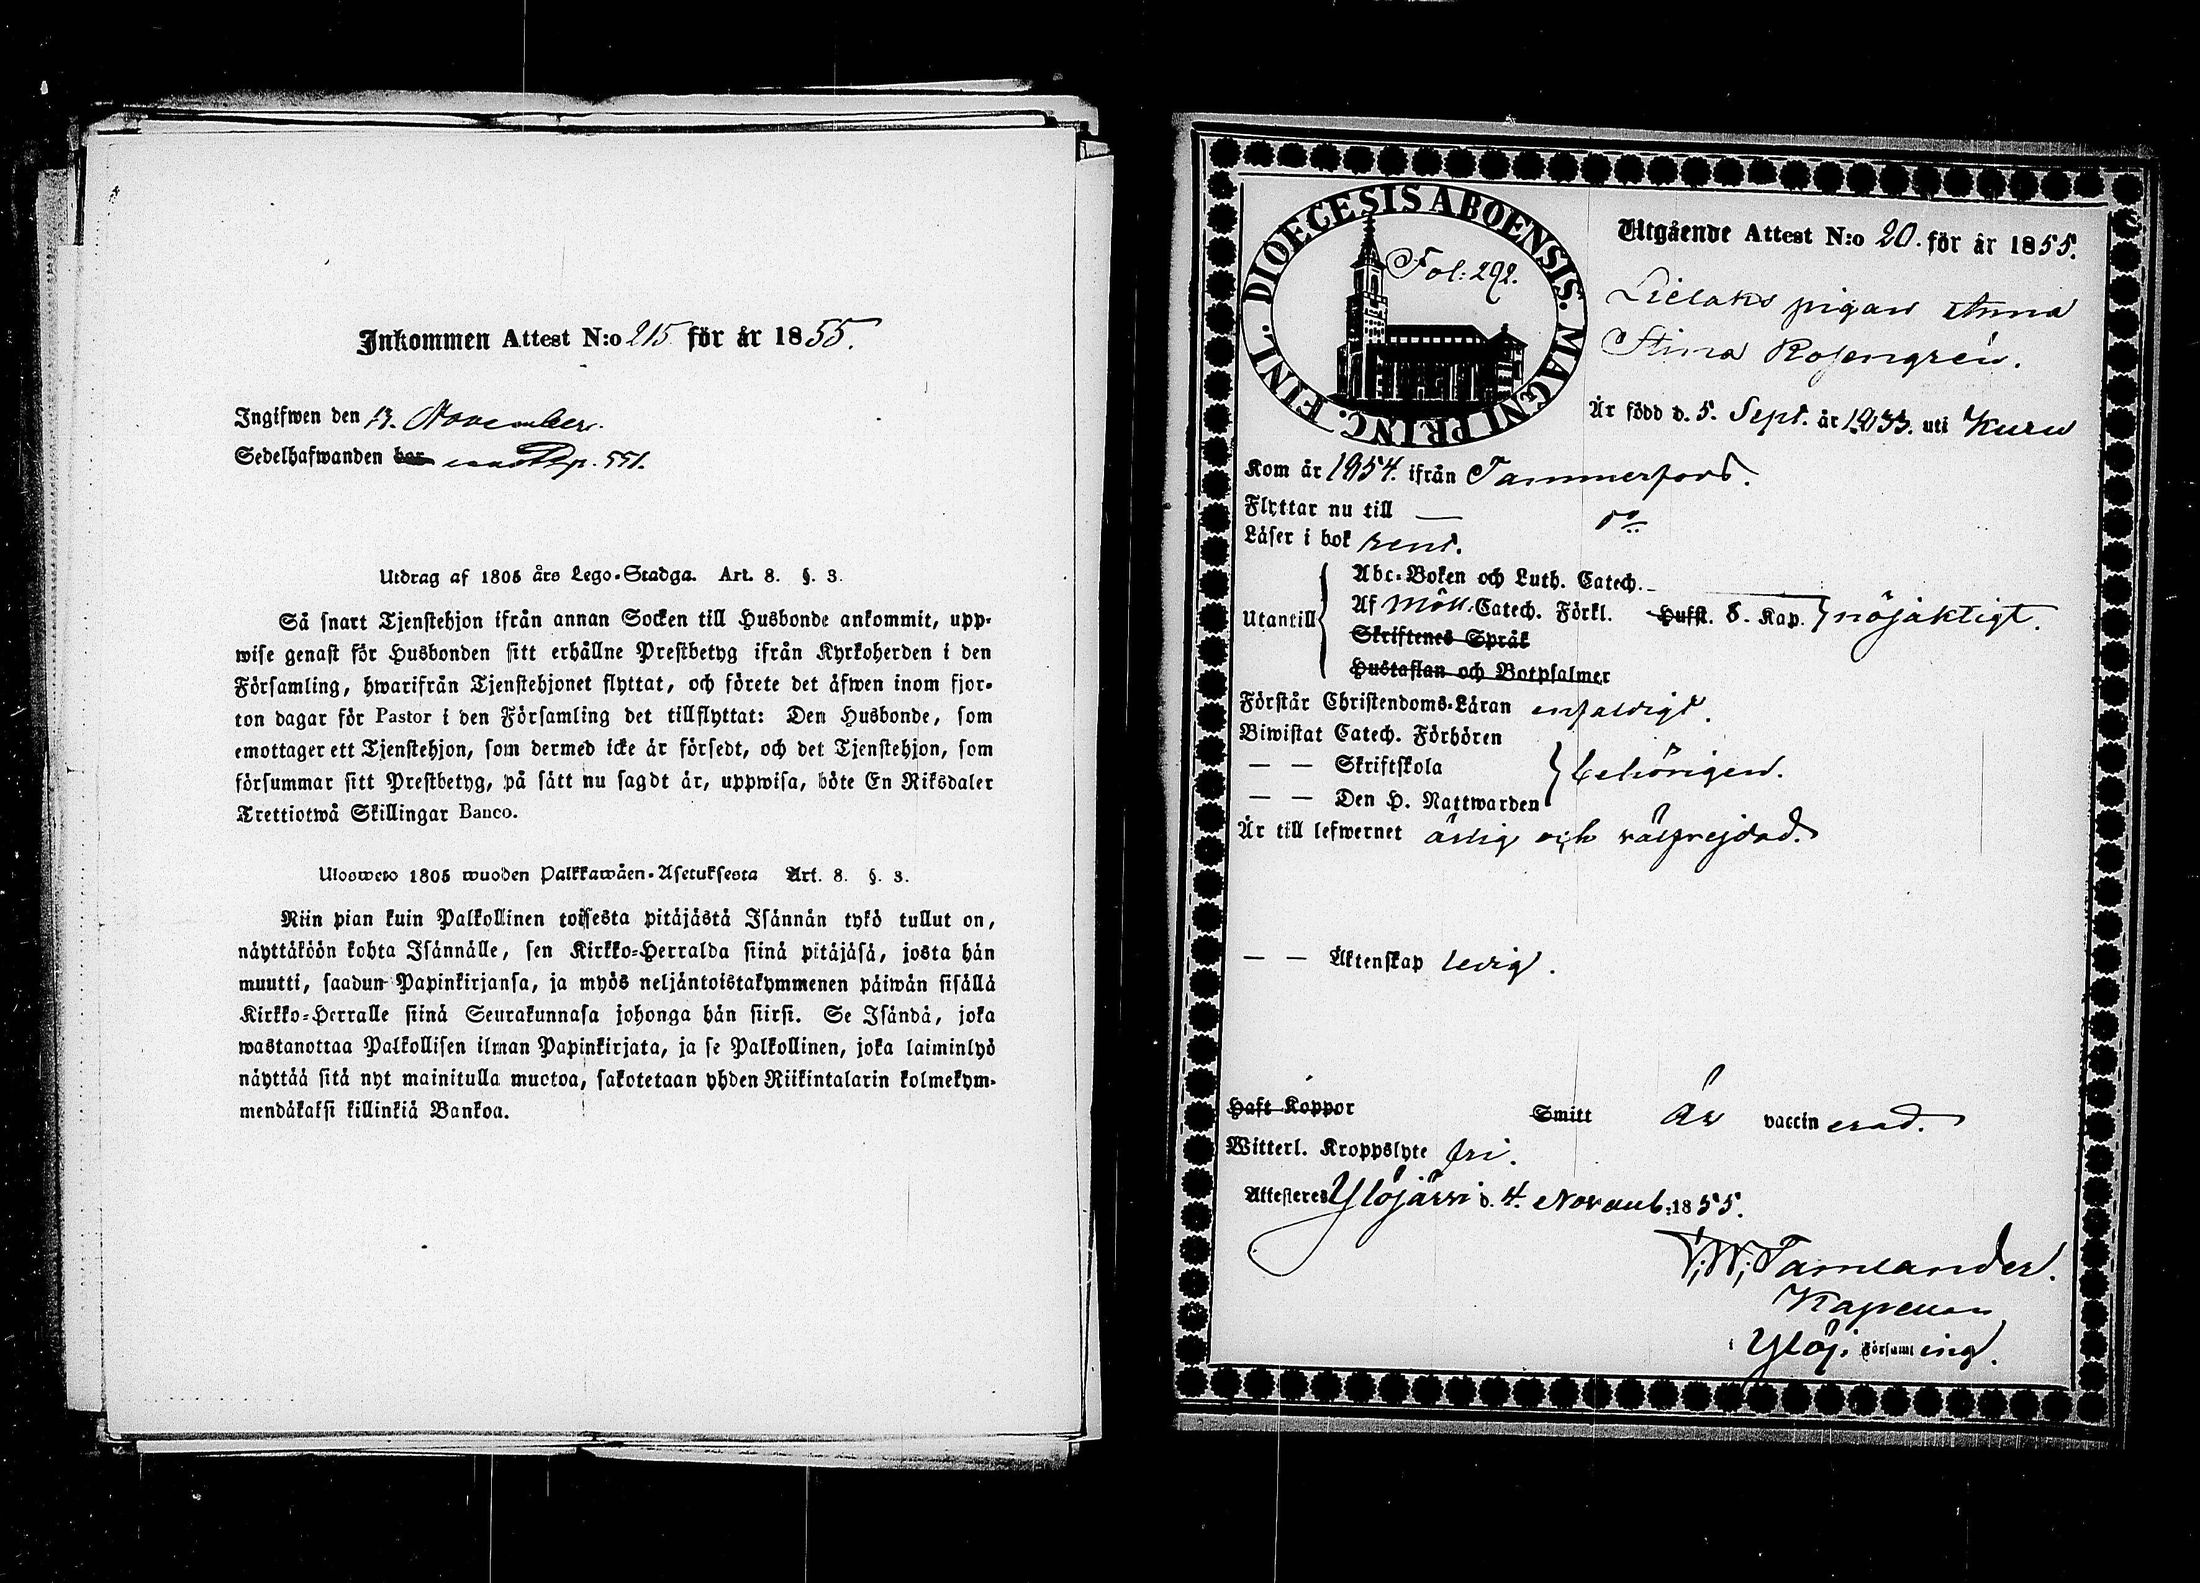 Inkommen Attest N:o 215 för år 1855.
Ingifwen den 13. November.
Sedelhafwanden bor Pag. 551.
Utdrag af 1805 års Lego-Stadga. Art. 8. §. 3.
Så snart Tjenstehjon ifrån annan Socken till Husbonde ankommit, upp-
wise genast för Husbonden sitt erhållne Prestbetyg ifrån Kyrkoherden i den
Församling, hwarifrån Tjenstehjonet flyttat, och förete det äfwen inom fjor-
ton dagar för Pastor i den Församling det tillflyttat: Den Husbonde, som
emottager ett Tjenstehjon, som dermed icke är försedt, och det Tjenstehjon, som
försummar sitt Prestbetyg, på sätt nu sagdt är, uppwisa, böte En Riksdaler
Trettiotwå Skillingar Banco.
Ulosweto 1805 wuoden Palkkawäen-Asetuksesta Art. 8. §. 3.
Niin pian kuin Palkollinen toisesta pitäjästä Isännän tykö tullut on,
näyttäköön kohta Isännälle, sen Kirkko-Herralda siinä pitäjäsä, josta hän
muutti, saadun Papinkirjansa, ja myös neljäntoistakymmenen päiwän sisällä
Kirkko-Herralle siinä Seurakunnasa johonga hän siirsi. Se Isändä, joka
wastanottaa Palkollisen ilman Papinkirjata, ja se Palkollinen, joka laiminlyö
näyttää sitä nyt mainitulla muotoa, sakotetaan yhden Riikintalarin kolmekym-
mendäkaksi killinkiä Bankoa.
DIOECESIS ABOENSIS. MAGNI PRINC. FINL.
Fol: 292.
Utgående Attest N:o 20. för år 1855.
Lielaks pigan Anna
Stina Rosengrén.
Är född d. 5. Sept. år 1833. uti Kuru
Kom år 1854. ifrån Tammerfors.
Flyttar nu till — do
Läser i bok rent.
Utantill
Abc-Boken och Luth. Catech.
Af Möll. Catech. Förkl. Hufst. 8. Kap. } nöjaktigt.
Skriftenes Språk
Hustaflan och Botpsalmer
Förstår Christendoms-Läran enfaldigt.
Biwistat Catech. Förhören
— — Skriftskola } behörigen.
— — Den H. Nattwarden
Är till lefwernet ärlig och välfrejdad.
— — Äktenskap ledig.
Haft Koppor Smitt Är vaccinerad.
Witterl. Kroppslyte fri.
Attesteres Ylöjärvi d. 4. Novemb. 1855.
Tamlander.
Kapellan
i Ylöj. Församling.